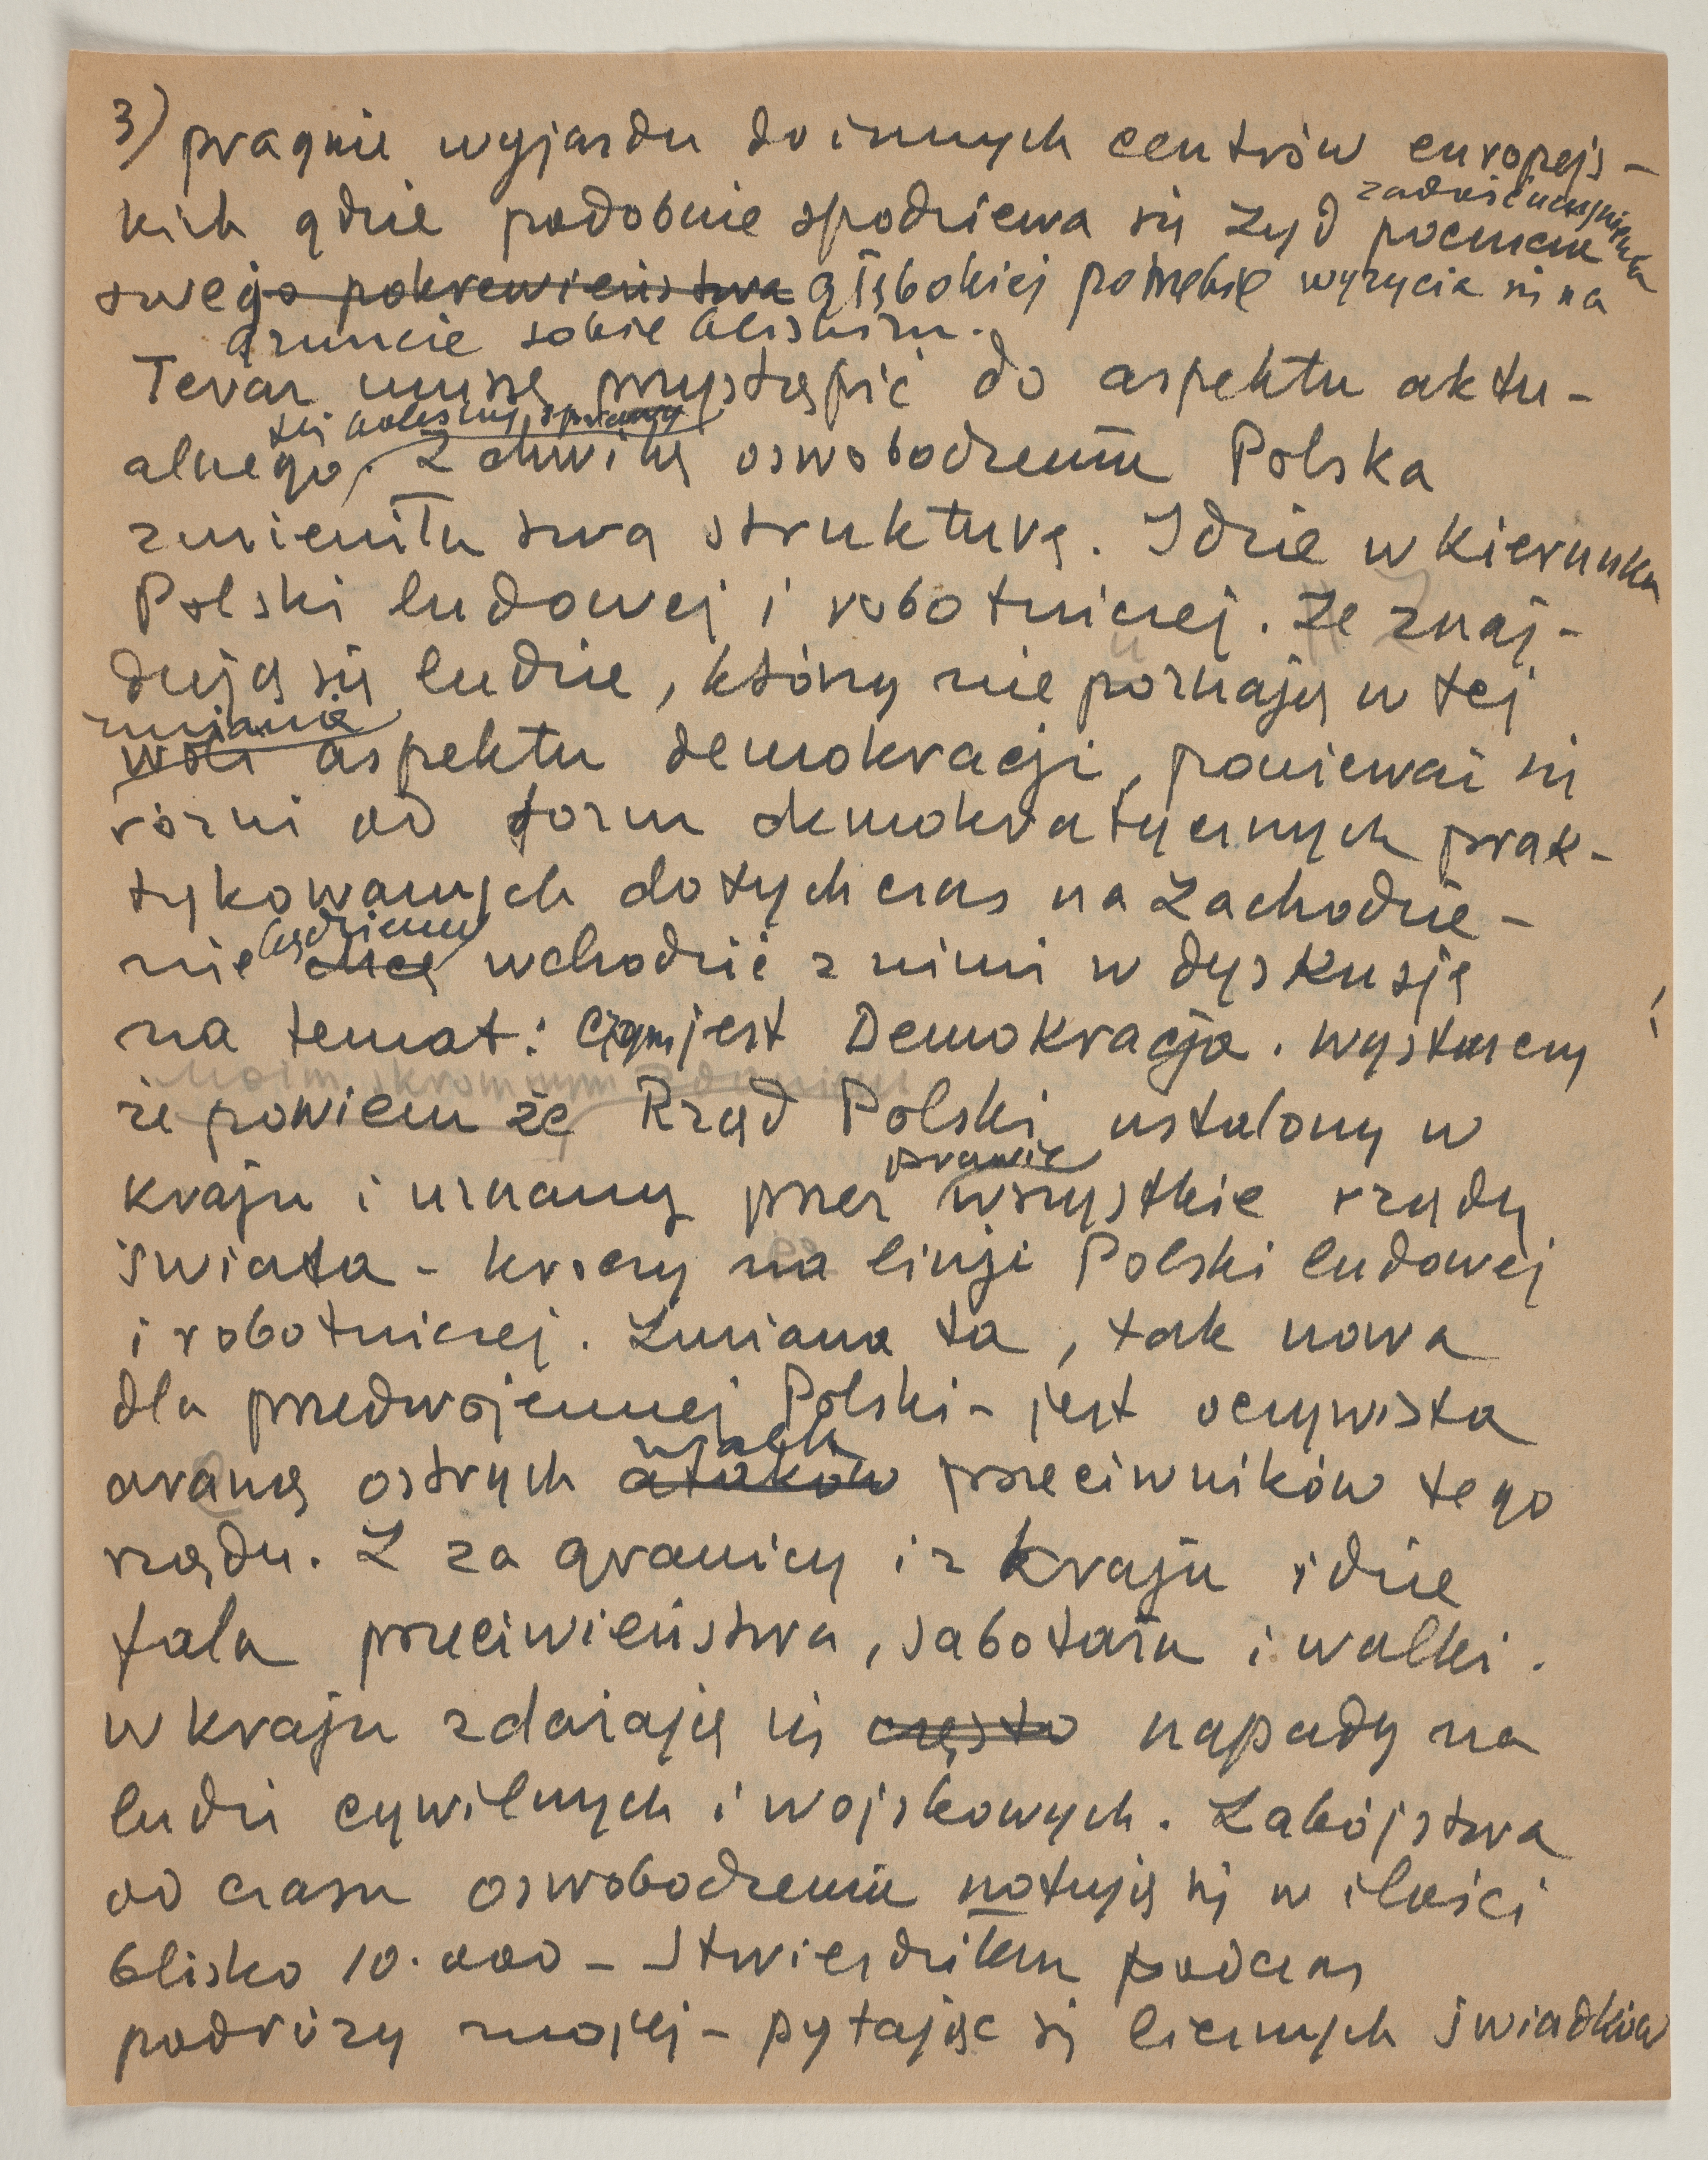 3) pragnie wyjazdu do innych centrów europejs-
kich gdzie podobnie spodziewa się Żyd
zadośćuczynienia
swego pokrewieństwa głębokiej potrzebie wyżycia się na
gruncie sobie bliskim.
Teraz muszę przystąpić do aspektu aktu-
tej bolesnej sprawy
alnego. Z chwilą oswobodzenia Polska
zmieniła swą strukturę. Idzie w kierunku
Polski ludowej i robotniczej. Że znaj-
dują się ludzie, którzy nie poznają w tej
zmianie
woli aspektu demokracji, ponieważ się
różni od form demokratycznych prak-
tykowanych dotychczas na Zachodzie-
będziemy
nie chcę wchodzić z nimi w dyskusję
na temat: czym jest Demokracja. Wystarczy
moim skromnym zdaniem
że powiem że Rząd Polski ustalony w
prawie
kraju i uznany przez wszystkie rządy
świata - kroczy na linji Polski ludowej
i robotniczej. Zmiana ta, tak nowa
dla przedwojennej Polski - jest oczywista
areną ostrych ataków przeciwników tego
rządu. Z za granicy i z kraju idzie
fala przeciwieństwa, sabotażu i walki.
W kraju zdarzają się często napady na
ludzi cywilnych i wojskowych. Zabójstwa
od czasu oswobodzenia notują się w ilości
blisko 10.000 - Stwierdziłem podczas
podróży mojej - pytając się licznych świadków